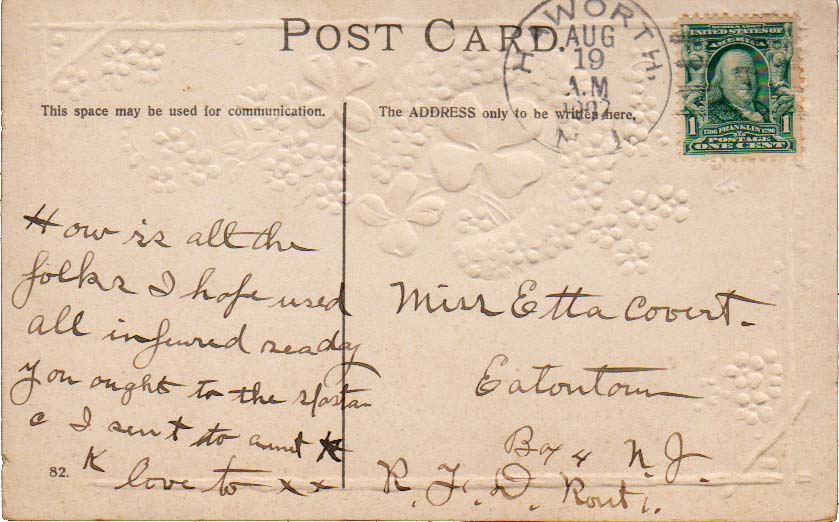 POST CARD.
HAWORTH,
AUG
19
A.M
N.J.
SERIES 1902
UNITED STATES OF
AMERICA
1 1
1706 FRANKLIN 1790
POSTAGE
ONE CENT
This space may be used for communication.
The ADDRESS only to be written here.
How is all the
folks I hope used
all
You ought to the
I sent to aunt K
K love to x x
82.
Miss Etta Covert.
Eatontown
Box 4 N.J.
R.F.D. Rout 1.